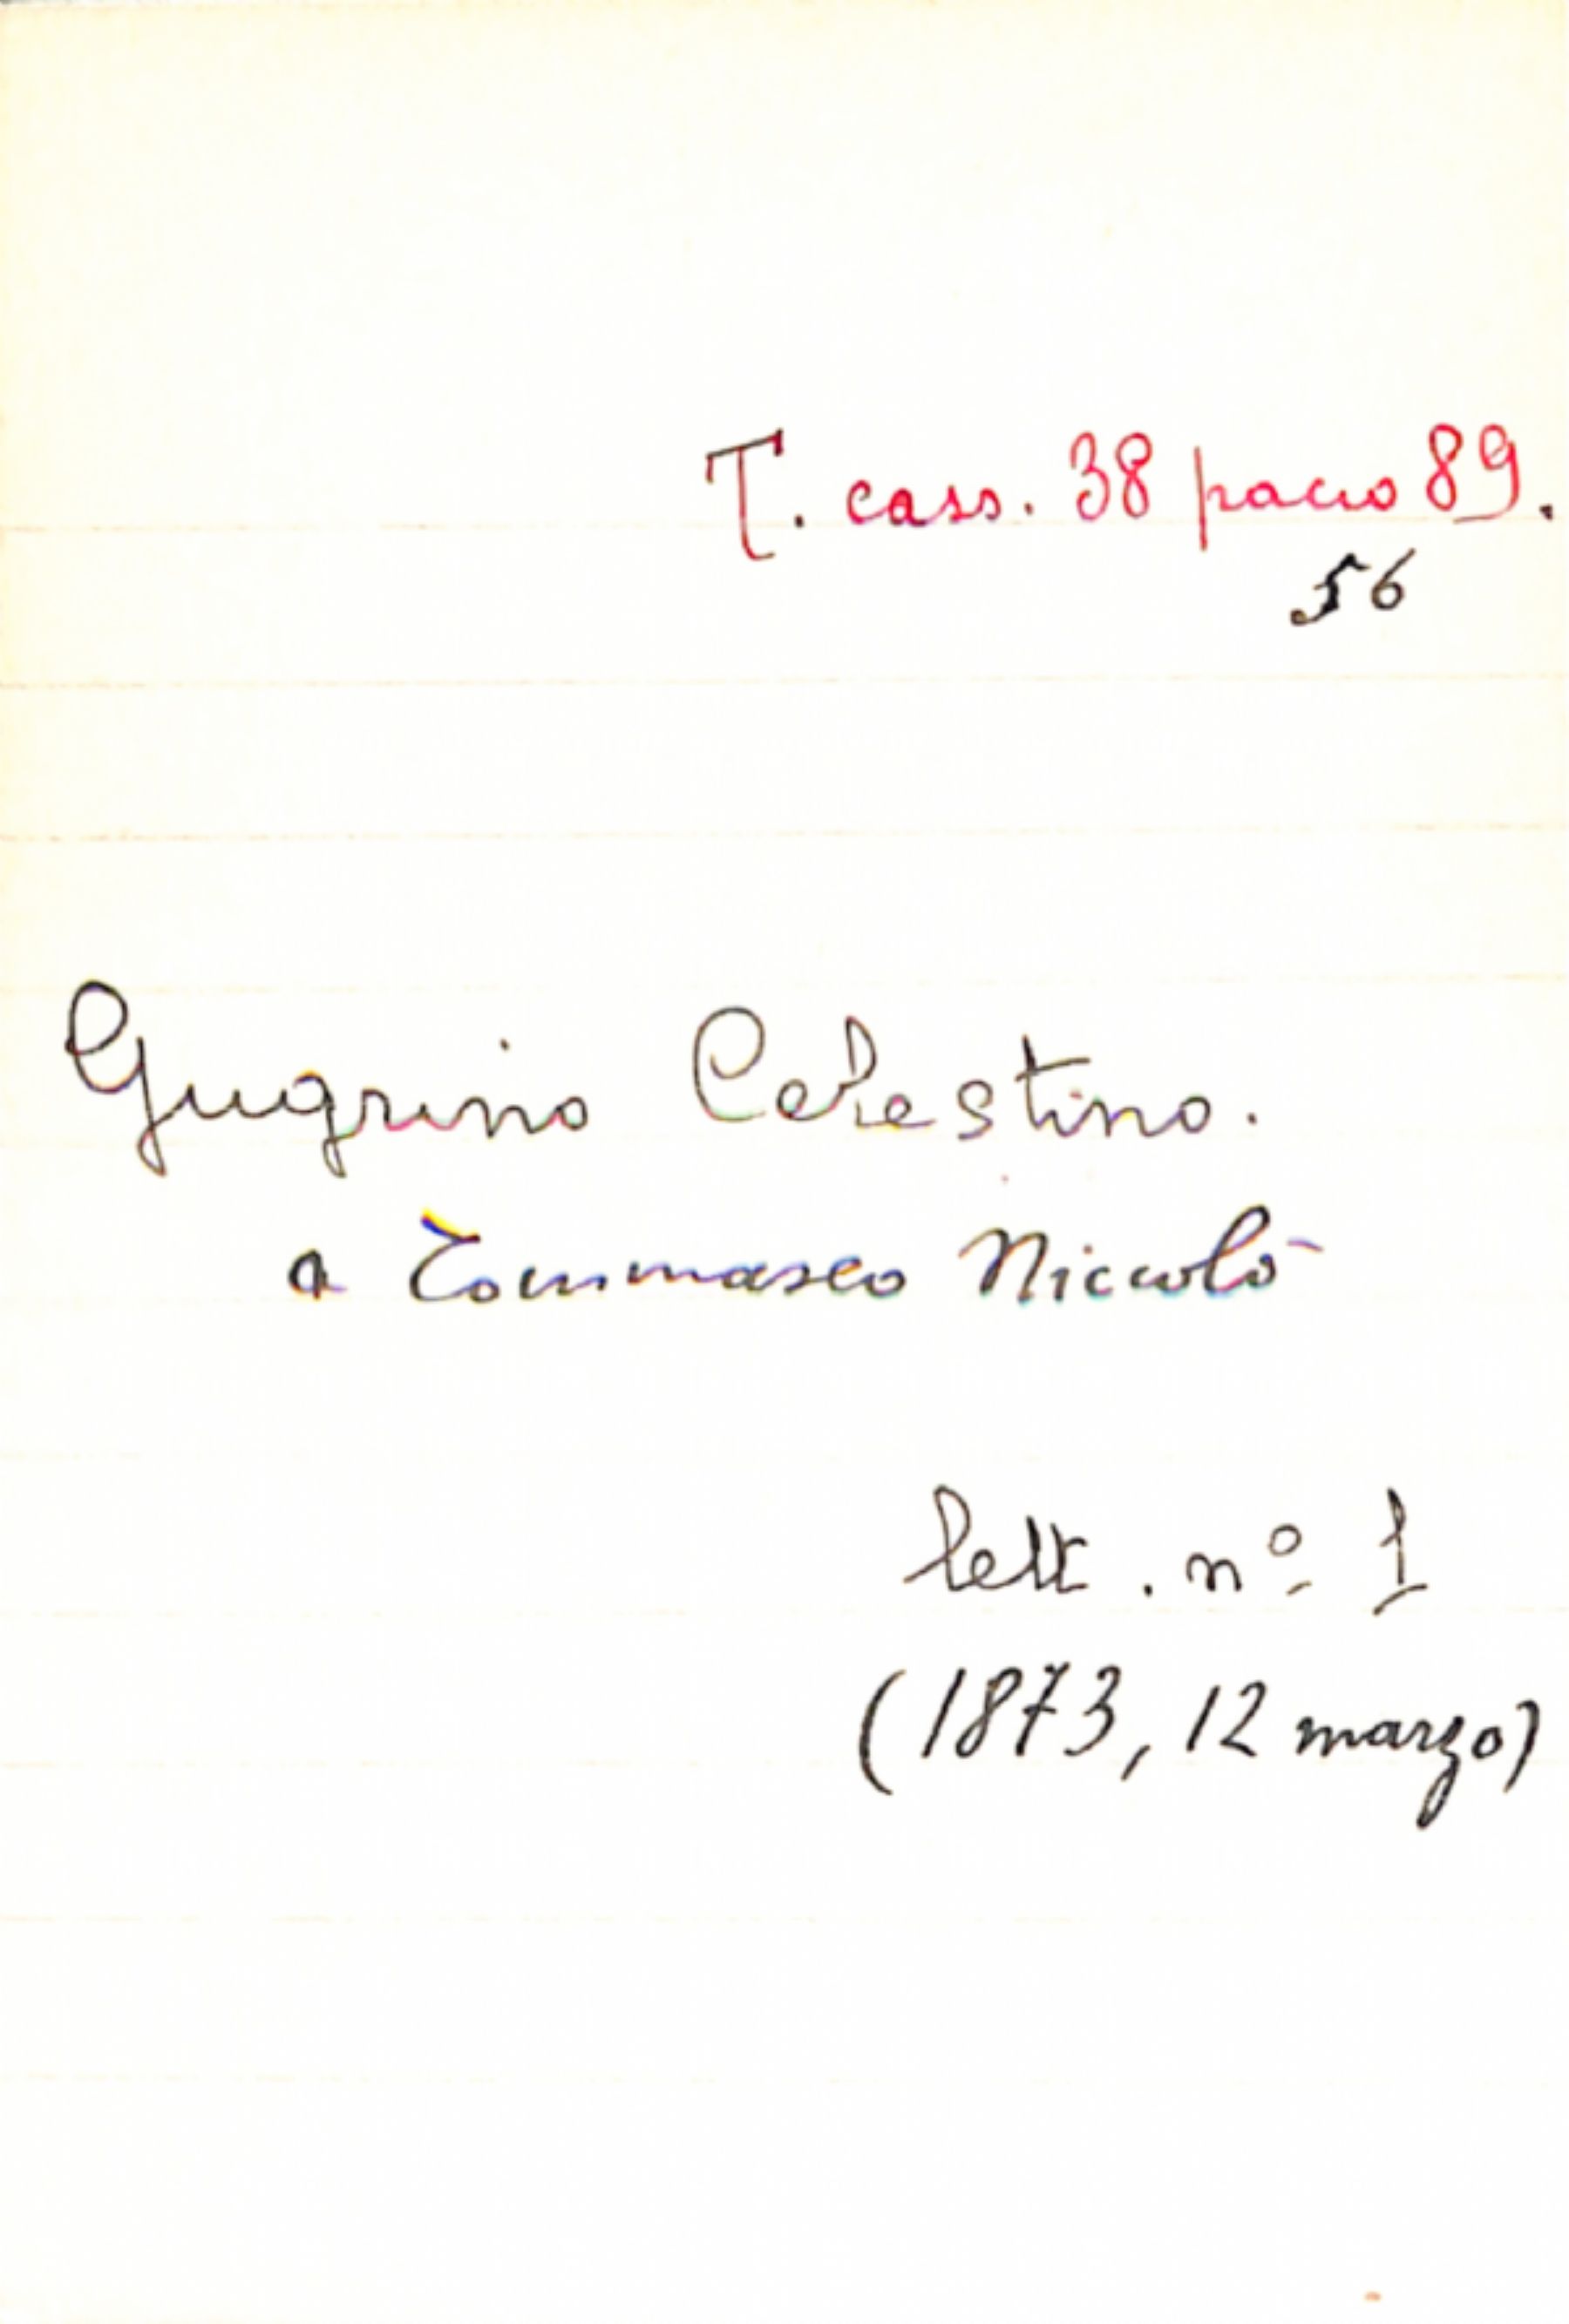 T. cass. 38 pacco 89.
56
Gugrino Celestino.
a Tommaseo Niccolò
lett. nº 1
(1873, 12 marzo)